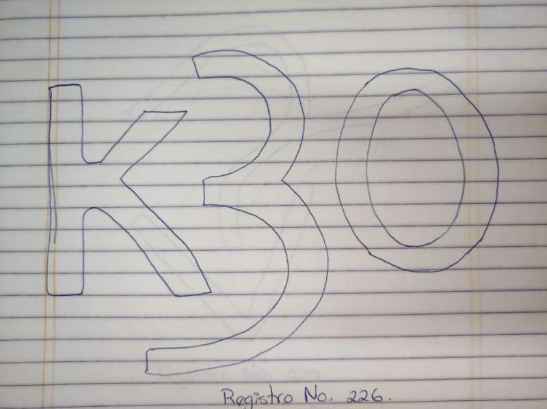 K3O
Registro No. 226.